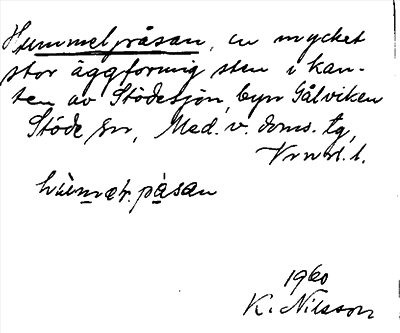 Hummelpåsan, en mycket
stor äggformig sten i kan-
ten av Stödesjön, byn Gålviken
Stöde sn, Med. v. doms. tg,
Vrnl. l.
hùmǝt. påsan
1960
K. Nilsson